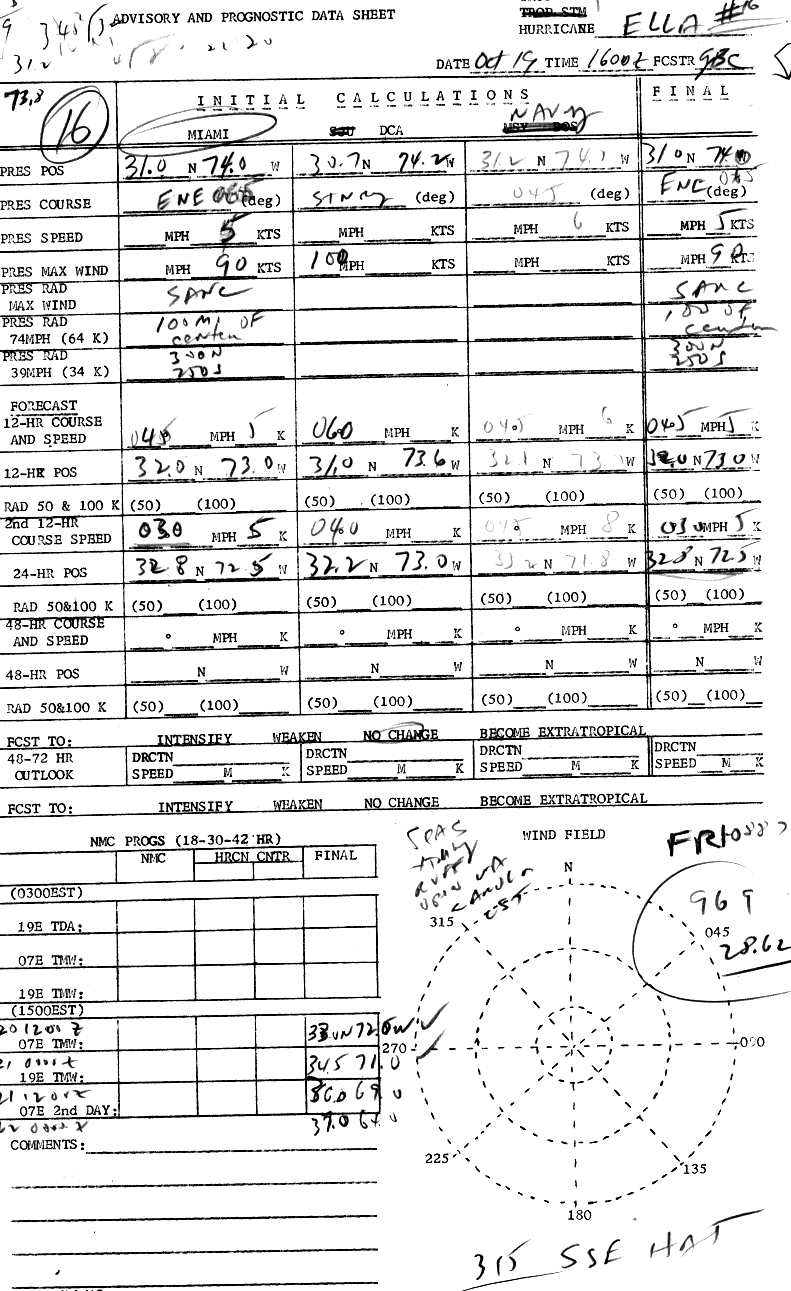 345
ADVISORY AND PROGNOSTIC DATA SHEET
TROP STM
HURRICANE ELLA #16
31.2 21 20
DATE Oct 19 TIME 1600Z FCSTR GBC
73.8
16
INITIAL CALCULATIONS FINAL
NAVY
MIAMI DCA
PRES POS 31.0 N 74.0 W 30.7 N 74.2 W 31.2 N 74.1 W 31.0 N 74.0 W
PRES COURSE ENE 065 (deg) STNRY (deg) 045 (deg) ENE 065 (deg)
PRES SPEED MPH 5 KTS MPH KTS MPH 6 KTS MPH 5 KTS
PRES MAX WIND MPH 90 KTS 100 MPH KTS MPH KTS MPH 90 KTS
PRES RAD
MAX WIND SAME SAME
PRES RAD
74MPH (64 K) 100 MI OF center 100 OF center
PRES RAD
39MPH (34 K) 300N 250S 300N 250S
FORECAST
12-HR COURSE
AND SPEED 045 MPH 5 K 060 MPH K 045 MPH 6 K 045 MPH 5 K
12-HR POS 32.0 N 73.0 W 31.0 N 73.6 W 32.1 N 73.1 W 32.0 N 73.0 W
RAD 50 & 100 K (50) (100) (50) (100) (50) (100) (50) (100)
2nd 12-HR
COURSE SPEED 030 MPH 5 K 040 MPH K 045 MPH 8 K 030 MPH 5 K
24-HR POS 32.8 N 72.5 W 32.2 N 73.0 W 33.2 N 71.8 W 32.8 N 72.5 W
RAD 50&100 K (50) (100) (50) (100) (50) (100) (50) (100)
48-HR COURSE
AND SPEED ° MPH K ° MPH K ° MPH K ° MPH K
48-HR POS N W N W N W N W
RAD 50&100 K (50) (100) (50) (100) (50) (100) (50) (100)
FCST TO: INTENSIFY WEAKEN NO CHANGE BECOME EXTRATROPICAL
48-72 HR DRCTN DRCTN DRCTN DRCTN
OUTLOOK SPEED M K SPEED M K SPEED M K SPEED M K
FCST TO: INTENSIFY WEAKEN NO CHANGE BECOME EXTRATROPICAL
NMC PROGS (18-30-42 HR)
NMC HRCN CNTR FINAL
(0300EST)
19E TDA:
07E TMW:
19E TMW:
(1500EST)
201200Z
07E TMW: 33.0N 72.0W
21 0000Z
19E TMW: 34.5 71.0
21 1200Z
07E 2nd DAY: 36.0 69.0
22 0000Z 37.0
COMMENTS:
WIND FIELD
N
315
045
270
090
225
135
180
969
28.62
315 SSE HAT